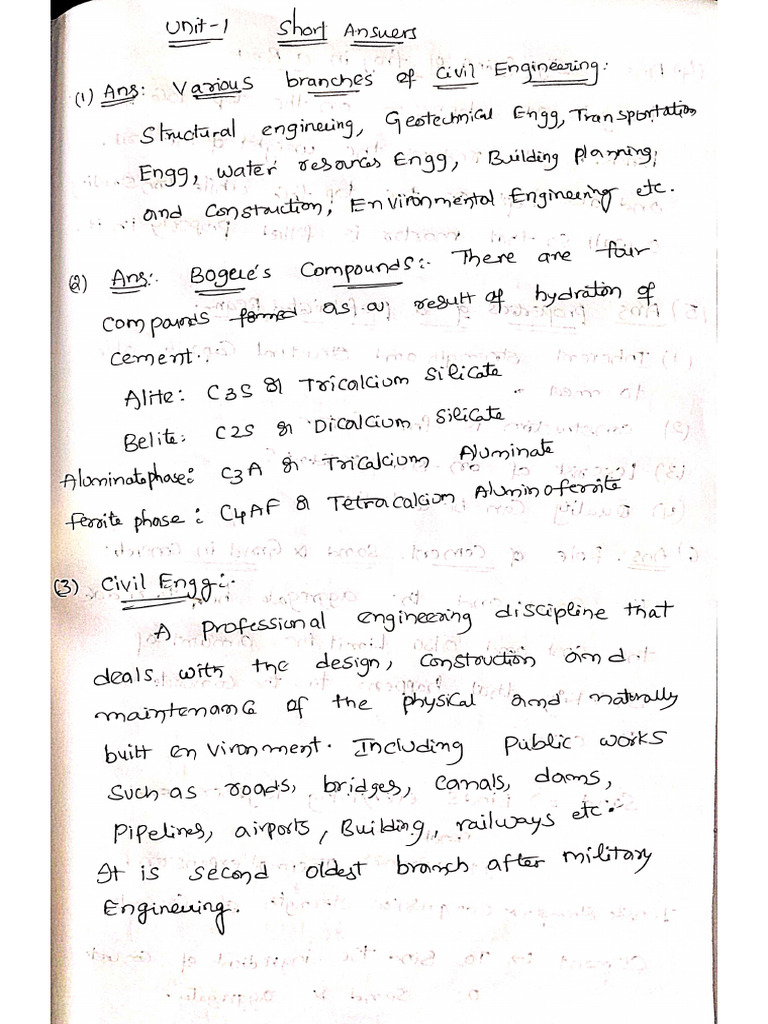 Unit-1 Short Answers
(1) Ans: Various branches of Civil Engineering:
Structural engineering, Geotechnical Engg, Transportation
Engg, water resources Engg, Building planning,
and Construction, Environmental Engineering etc.
(2) Ans:- Bogere's Compounds:- There are four
compounds formed as a result of hydration of
cement.
Alite: C3S or Tricalcium Silicate
Belite: C2S or Dicalcium Silicate
Aluminatephase: C3A or Tricalcium Aluminate
ferrite phase: C4AF or Tetracalcium Aluminoferrite
(3) Civil Engg:-
A professional engineering discipline that
deals with the design, construction and
maintenance of the physical and naturally
built environment. Including public works
such as roads, bridges, canals, dams,
pipelines, airports, Building, railways etc:-
It is second oldest branch after military
Engineering.